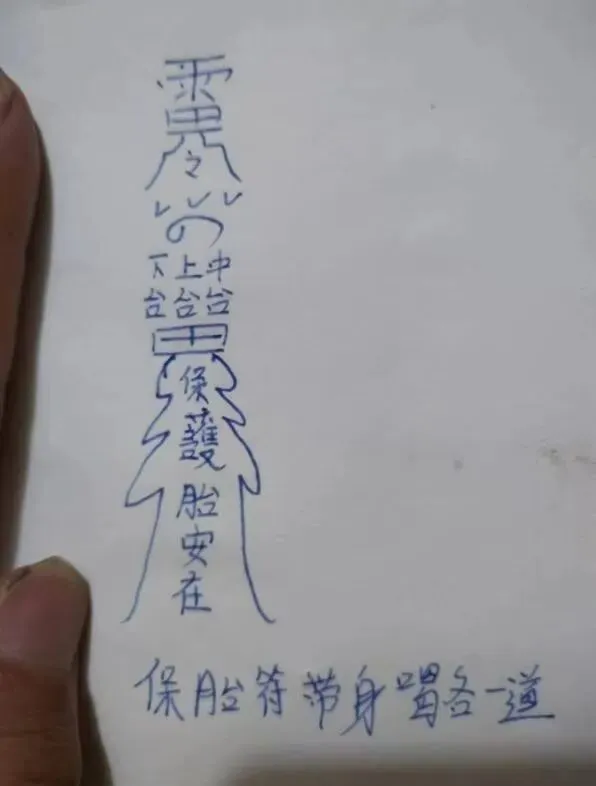 下上中
台台台
保護胎安在
保胎符带身喝各一道